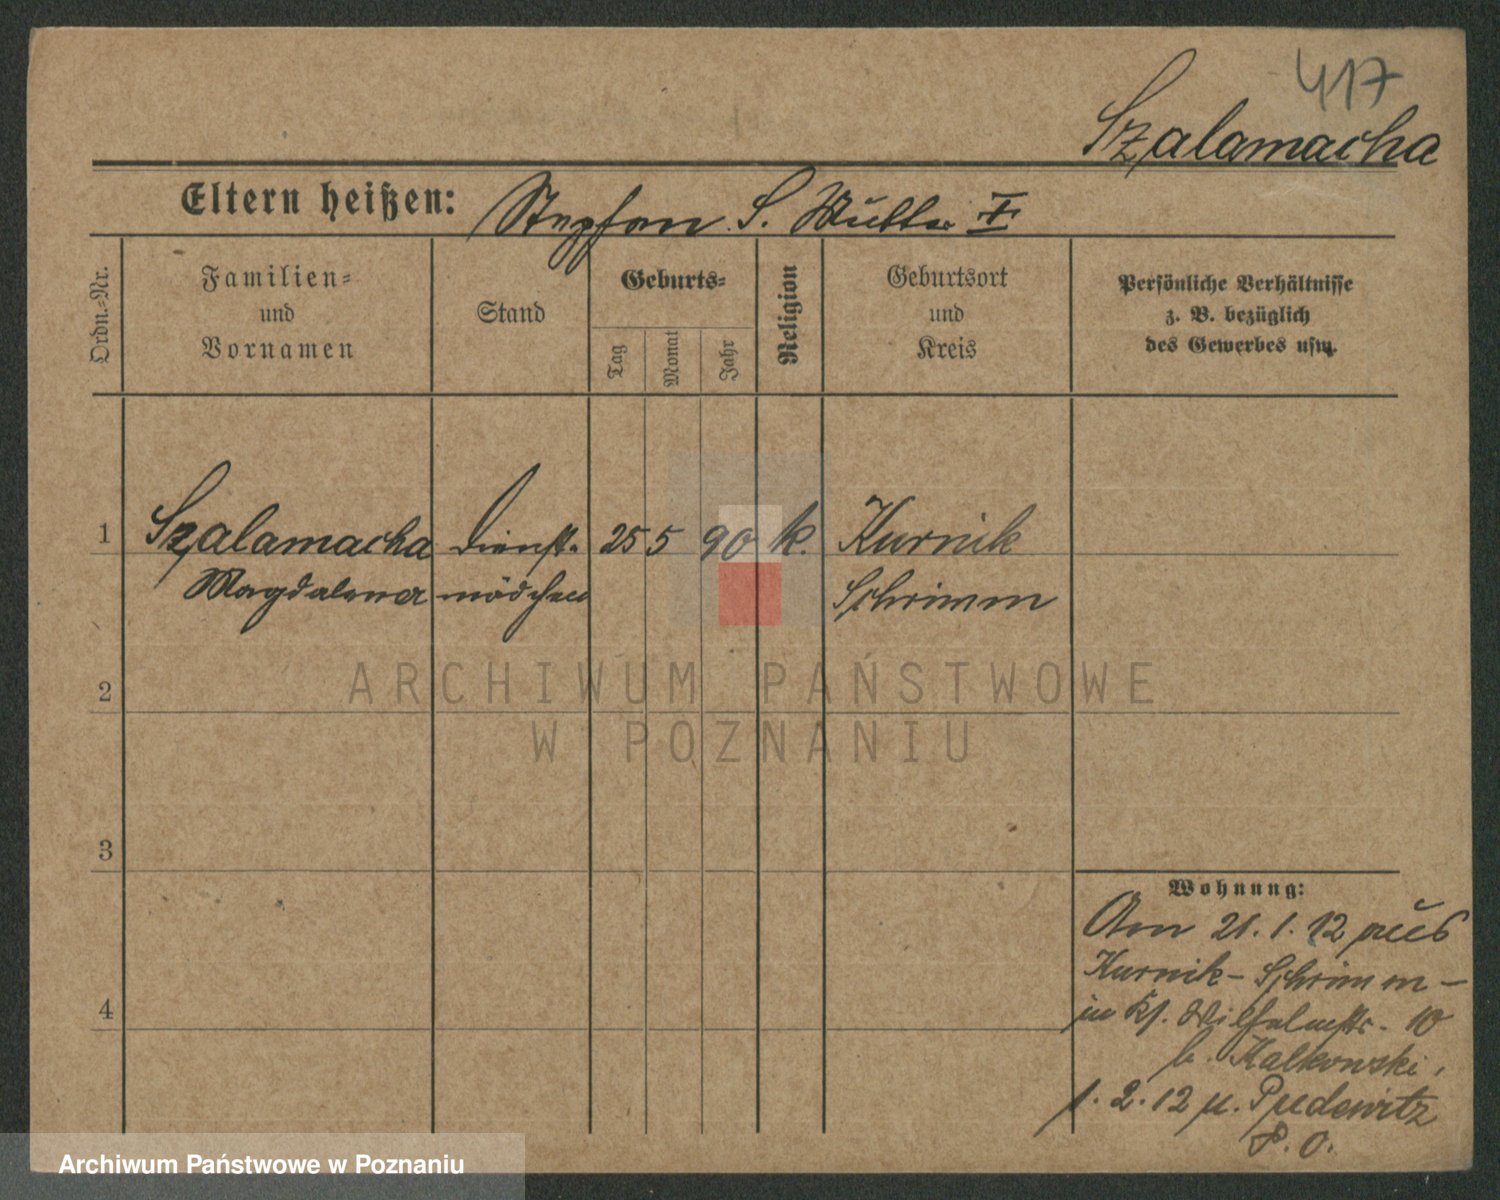 417
Szalamacha
Eltern heißen: Stephan S. Mutter †
Ordn.-Nr.
Familien-
und
Vornamen
Stand
Geburts-
Tag
Monat
Jahr
Religion
Geburtsort
und
Kreis
Persönliche Verhältnisse
z. B. bezüglich
des Gewerbes usw.
1 Szalamacha Dienst- 25 5 90 k. Kurnik
Magdalena mädchen Schrimm
2
3
4
Wohnung:
Am 21. 1. 12 aus
Kurnik - Schrimm -
in Wilhelmstr. 10
b. Kalkowski,
1. 2. 12 n. Pudewitz
P. O.
ARCHIWUM PAŃSTWOWE
W POZNANIU
Archiwum Państwowe w Poznaniu